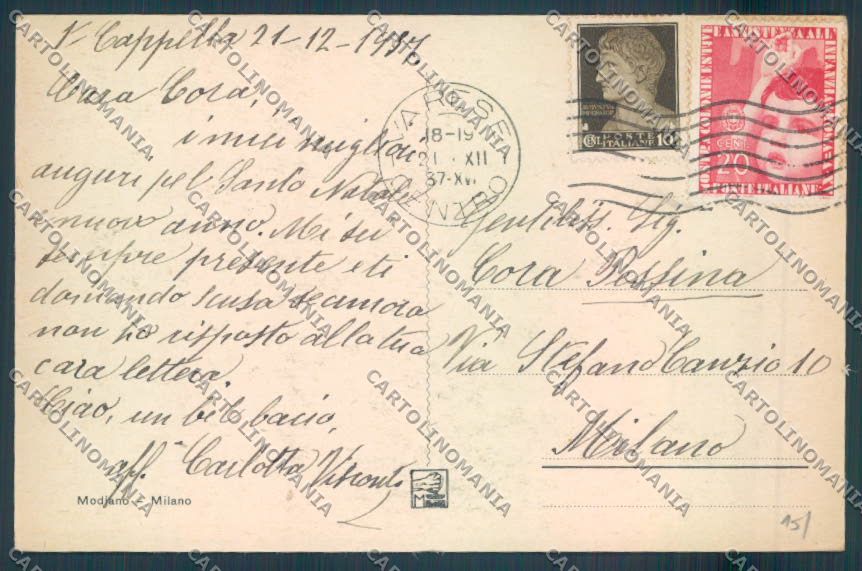 Iª Cappella 21-12-1937
Cara Cora,
i miei migliori
auguri pel Santo Natale
i nuovo anno. Mi sei
sempre presente e ti
domando scusa se ancora
non ho risposto alla tua
cara lettera.
Ciao, un bel bacio,
aff. Carlotta Visconti
Modiano - Milano
VARESE
18-19
21 XII
37-XVI
POSTE
ITALIANE
CENT. 10
CENT.
20
POSTE ITALIANE
Gentiliss. Sig.
Cora
Via Stefano Canzio 10
Milano
15/
CARTOLINOMANIA